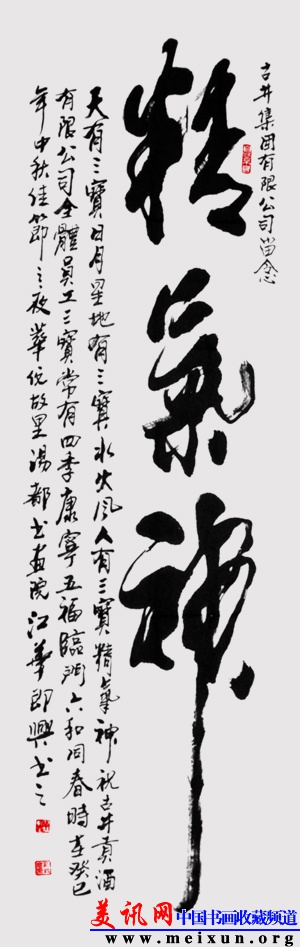 古井集团有限公司留念
精氣神
天有三寶日月星地有三寶水火风人有三寶精氣神祝古井貢酒
有限公司全體員工三寶常有四季康寧五福臨門六和同春時在癸巳
年中秋佳節之夜華佗故里湯都书画院江華即興书之
美讯网 中国书画收藏频道
www.meixun.org